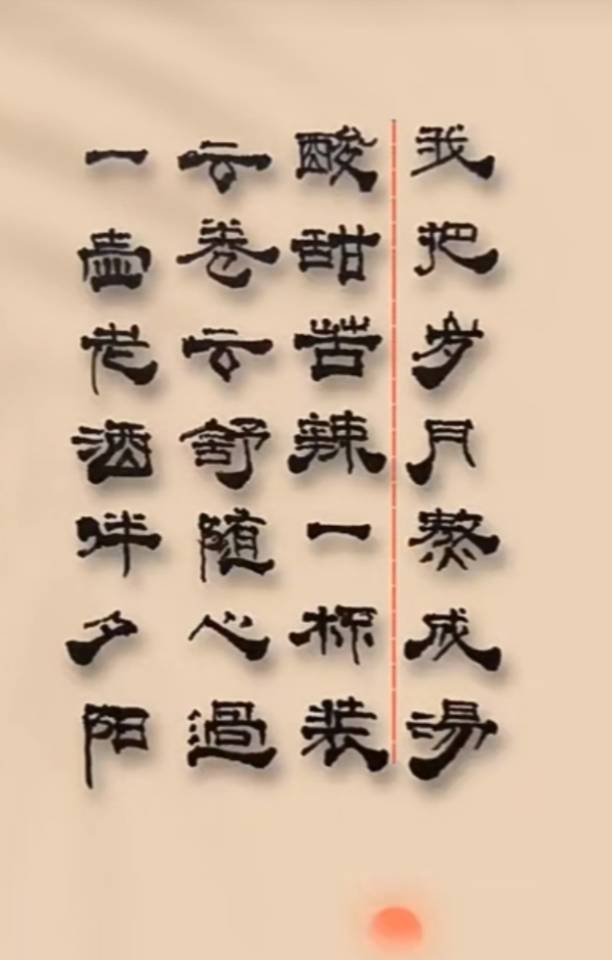 我把岁月熬成汤
酸甜苦辣一杯装
云卷云舒随心過
一壶老酒伴夕阳